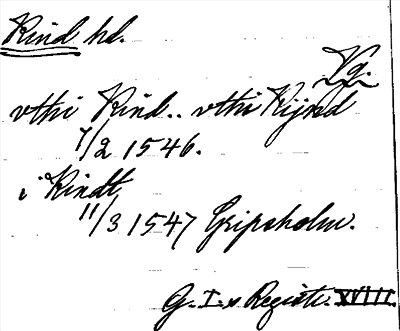 Kind hd.
Vg.
vthi Kind.. vthi Kijnd
7/2 1546.
i Kindt
11/3 1547 Gripsholm.
G. I. s Registr. XVIII.